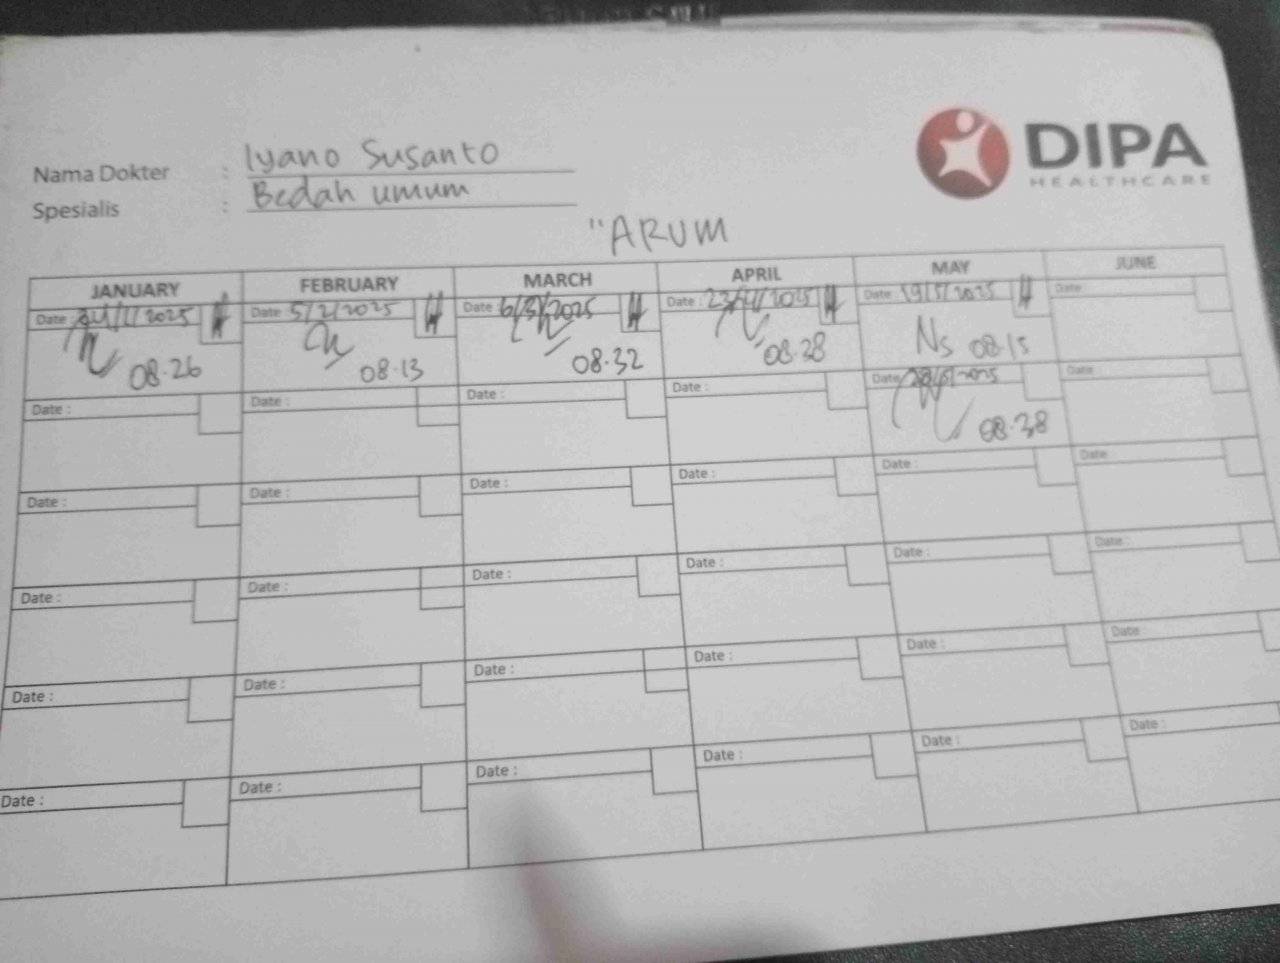 DIPA
HEALTHCARE
Nama Dokter : Iyano Susanto
Spesialis : Bedah umum
"ARUM
JANUARY FEBRUARY MARCH APRIL MAY JUNE
Date : /1/2025 Date : 5/2/2025 Date : 6/3/2025 Date : 23/4/2025 Date : 19/5/2025 Date :
08.26 08.13 08.32 08.28 Ns 08.15
Date : Date : Date : Date : Date : /5/2025 Date :
08.38
Date : Date : Date : Date : Date : Date
Date : Date : Date : Date : Date : Date :
Date : Date : Date : Date : Date : Date
Date : Date : Date : Date : Date : Date :